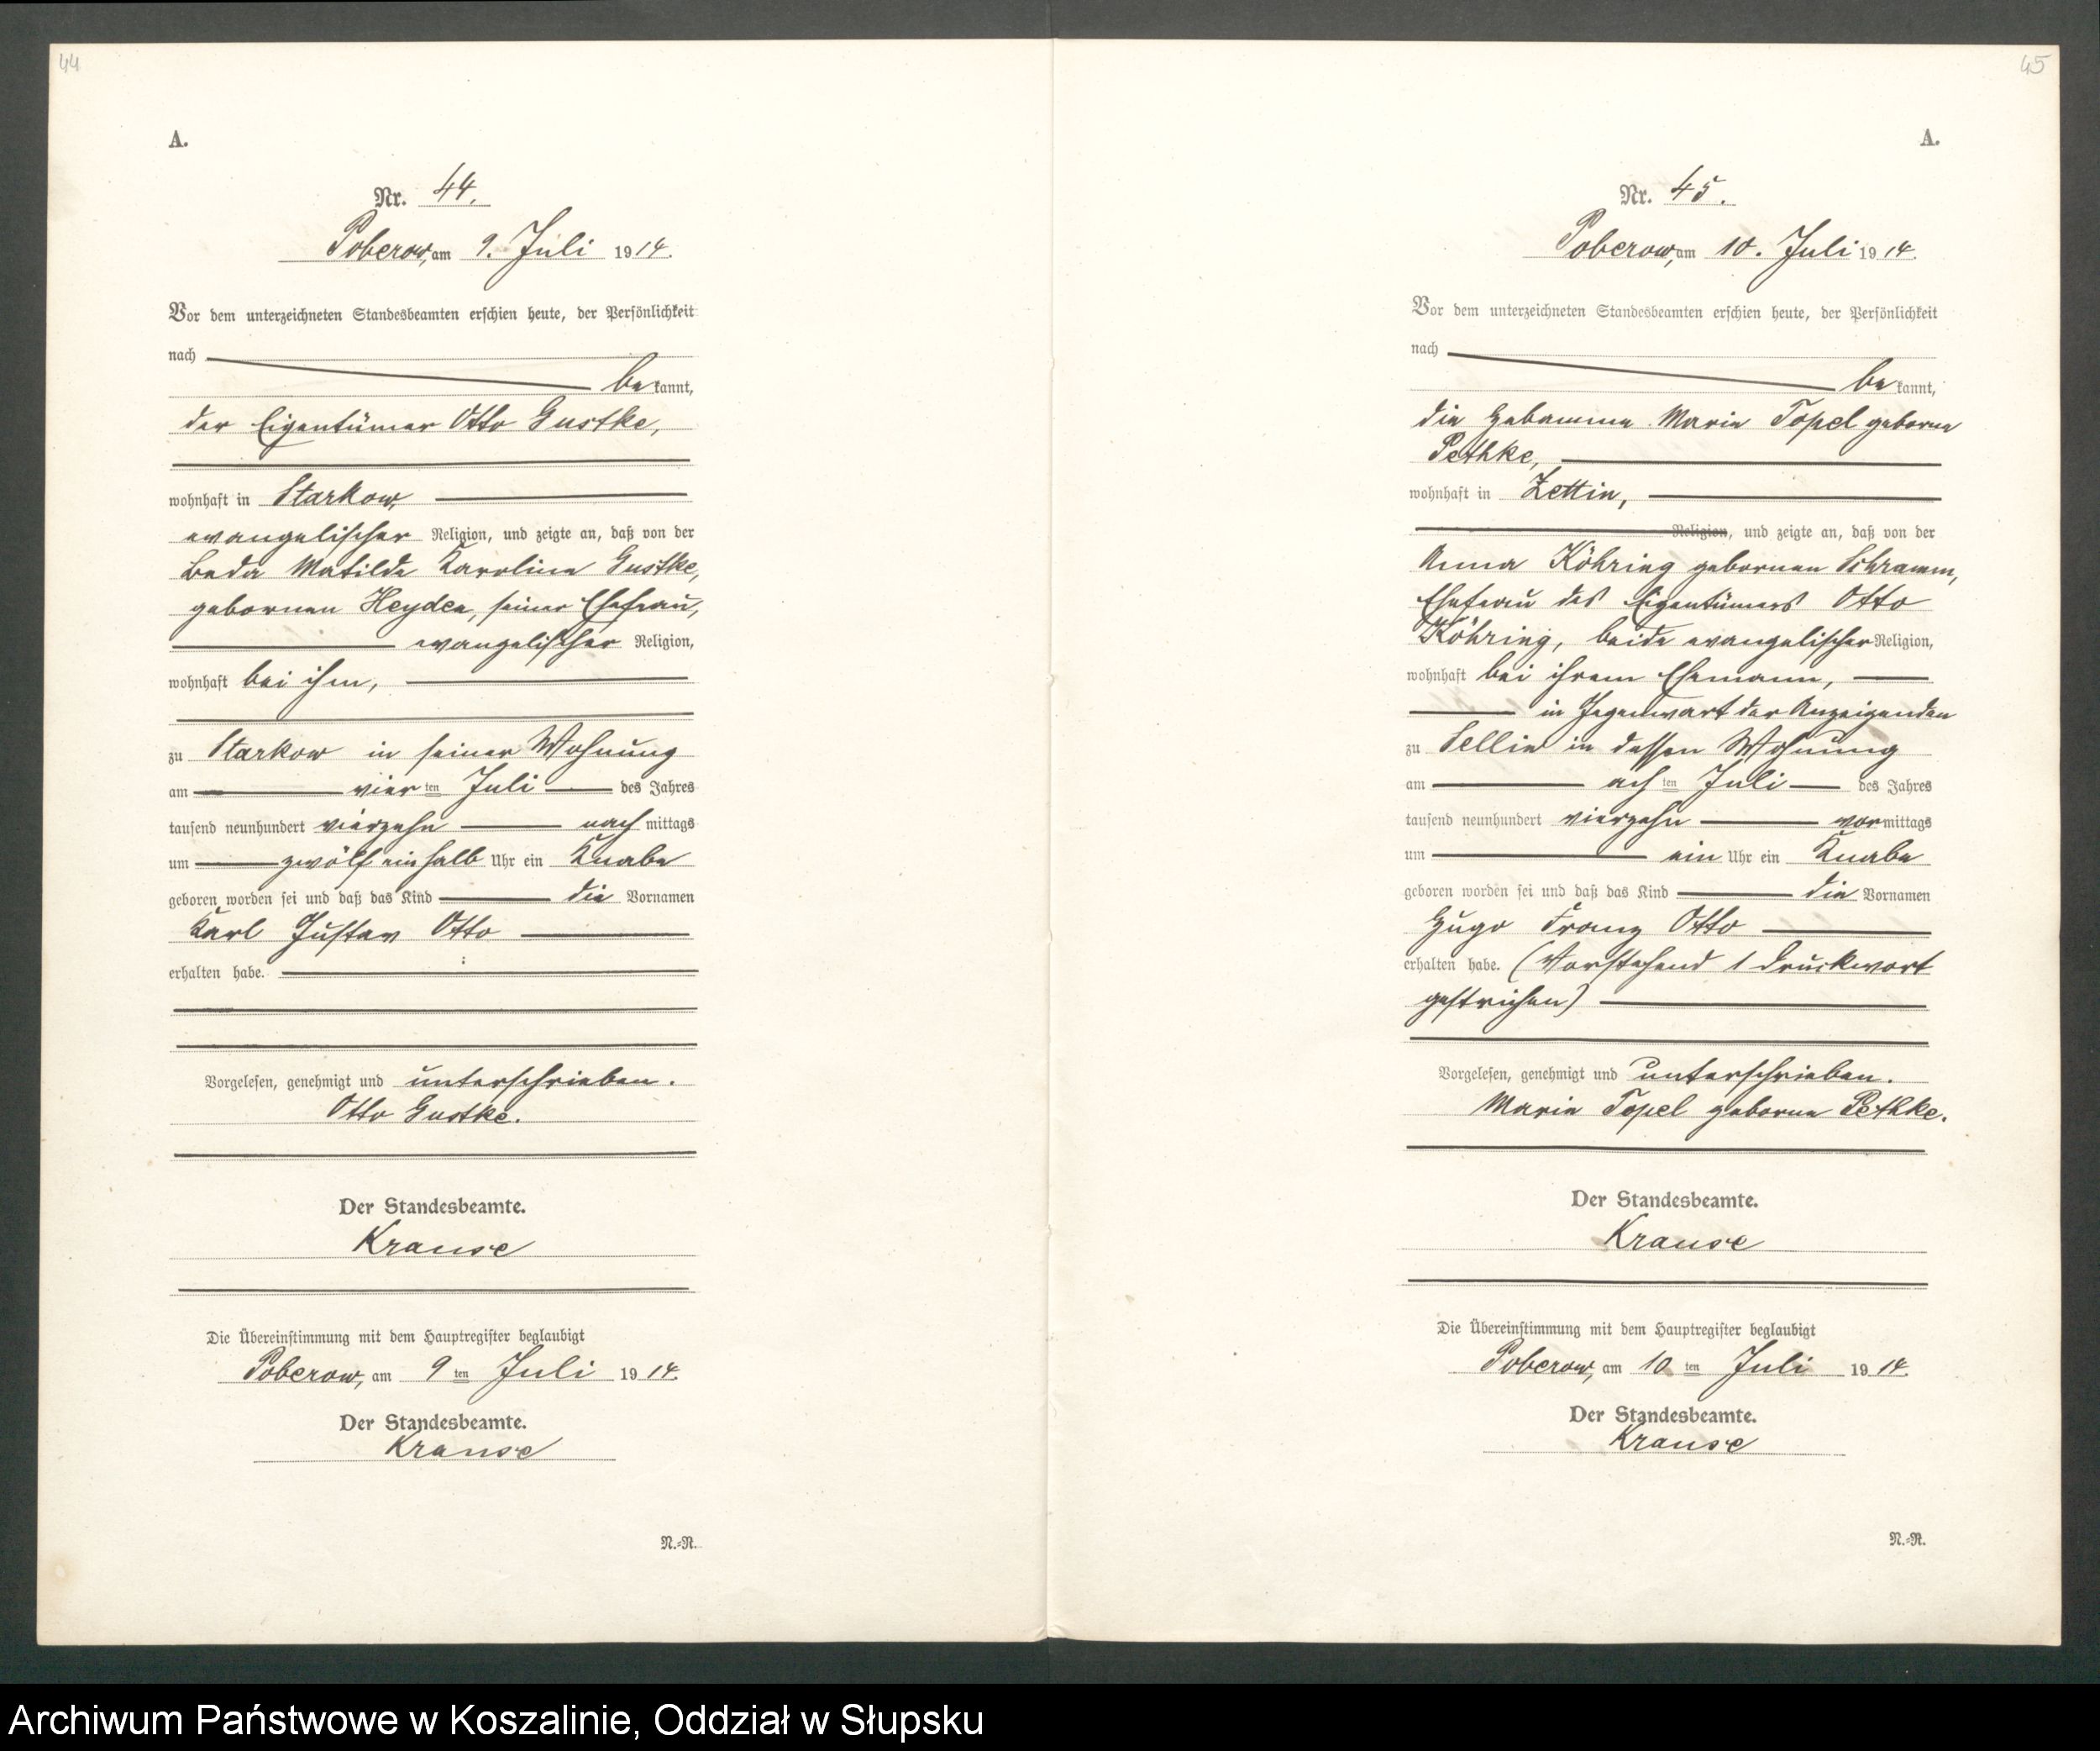 44
A.
Nr. 44.
Poberow, am 9. Juli 1914.
Vor dem unterzeichneten Standesbeamten erschien heute, der Persönlichkeit
nach
be kannt,
der Eigentümer Otto Gustke,
wohnhaft in Starkow,
evangelischer Religion, und zeigte an, daß von der
Beda Matilde Karoline Gustke,
gebornen Heyden, seiner Ehefrau,
evangelischer Religion,
wohnhaft bei ihm,
zu Starkow in seiner Wohnung
am vier ten Juli des Jahres
tausend neunhundert vierzehn nach mittags
um zwölf einhalb Uhr ein Knabe
geboren worden sei und daß das Kind die Vornamen
Karl Gustav Otto
erhalten habe.
Vorgelesen, genehmigt und unterschrieben.
Otto Gustke.
Der Standesbeamte.
Krause
Die Übereinstimmung mit dem Hauptregister beglaubigt
Poberow, am 9 ten Juli 1914.
Der Standesbeamte.
Krause
N.-R.
45
A.
Nr. 45.
Poberow, am 10. Juli 1914.
Vor dem unterzeichneten Standesbeamten erschien heute, der Persönlichkeit
nach
be kannt,
die Hebamme Marie Topel geborne
Pethke,
wohnhaft in Zettin,
Religion, und zeigte an, daß von der
Anna Köhring gebornen Schramm,
Ehefrau des Eigentümers Otto
Köhring, beide evangelischer Religion,
wohnhaft bei ihrem Ehemann,
in Gegenwart der Anzeigenden
zu Sellin in dessen Wohnung
am ach ten Juli des Jahres
tausend neunhundert vierzehn vor mittags
um ein Uhr ein Knabe
geboren worden sei und daß das Kind die Vornamen
Hugo Franz Otto
erhalten habe. (Vorstehend 1 Druckwort
gestrichen)
Vorgelesen, genehmigt und unterschrieben.
Marie Topel geborne Pethke.
Der Standesbeamte.
Krause
Die Übereinstimmung mit dem Hauptregister beglaubigt
Poberow, am 10 ten Juli 1914.
Der Standesbeamte.
Krause
N.-R.
Archiwum Państwowe w Koszalinie, Oddział w Słupsku